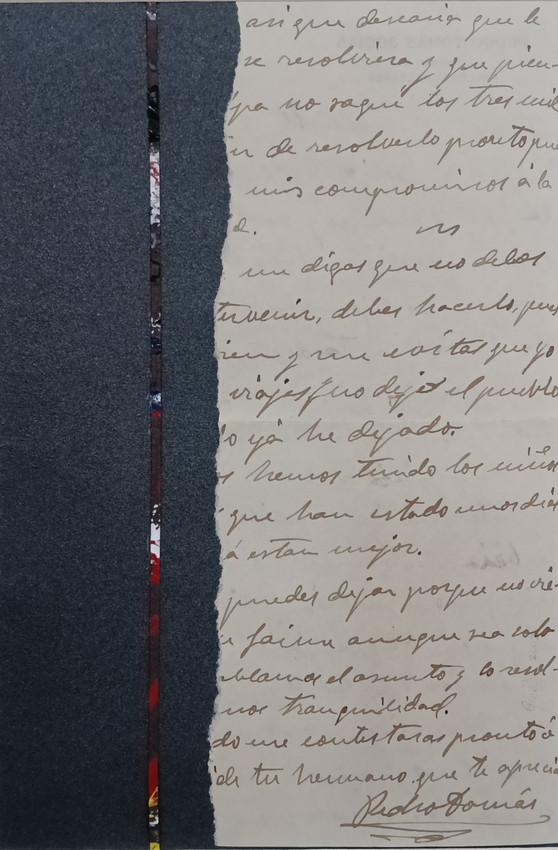 asi que desearia que le
se resolviera y que pien-
pa no saque los tres mil
in de resolverlo pronto pue
mis compromisos á la
d.
me digas que no debes
tervenir, debes hacerlo, pues
ien y me evitas que yo
viajes y no deje el pueblo
lo ya he dejado.
s hemos tenido los niños
que han estado unos dias
á estan mejor.
puedes dejar porque no vie-
aunque sea solo
blamos el asunto y lo resol-
mos tranquilidad.
do me contestaras pronto á
de tu hermano que te aprecia
Pedro Tomás